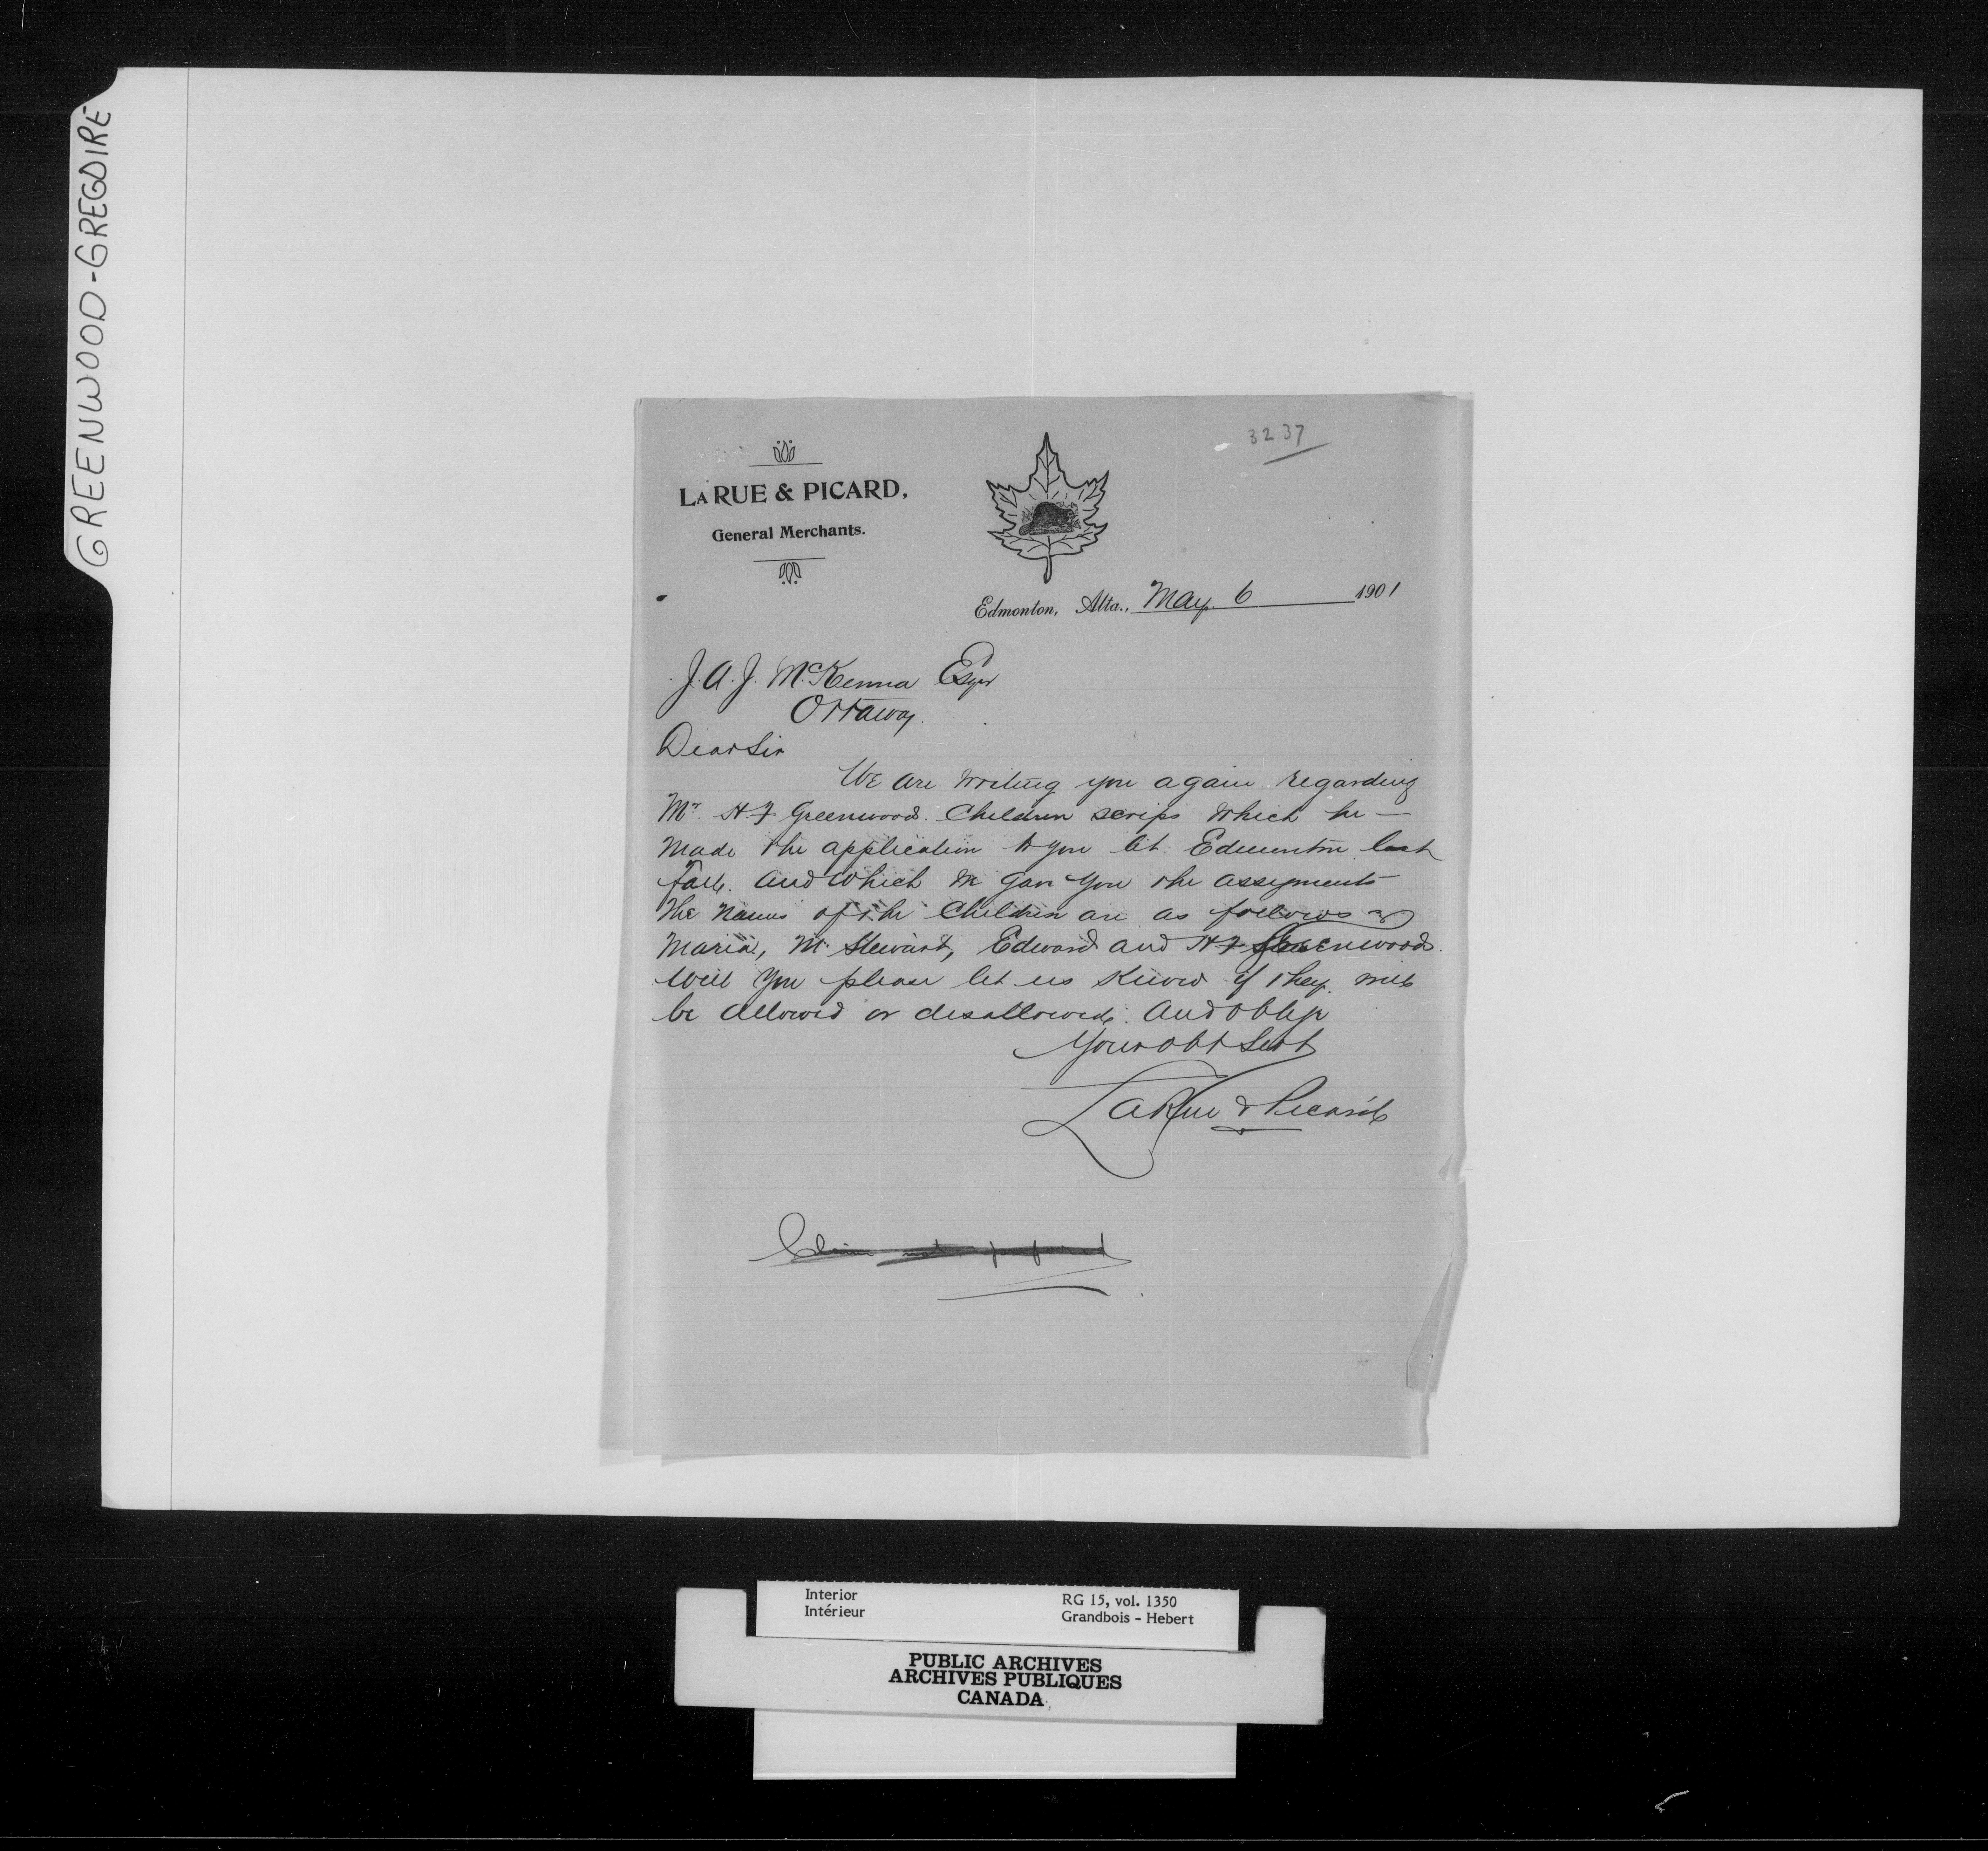 GREENWOOD-GREGOIRE
3237
LA RUE & PICARD,
General Merchants.
Edmonton, Alta., May 6 1901
J. A. J. McKenna Esqr
Ottawa
Dear Sir
We are writing you again regarding
Mr H. F Greenwood. Children scrips which he —
made the application to you at Edmonton last
fall. and which we gave you the assignments
The names of the Children are as follows
Maria, M. Stewart, Edward and H F Greenwood.
Will you please let us know if they will
be allowed or disallowed. and oblige
Your obt Servt
LaRue & Picard
Interior
Intérieur
RG 15, vol. 1350
Grandbois - Hebert
PUBLIC ARCHIVES
ARCHIVES PUBLIQUES
CANADA